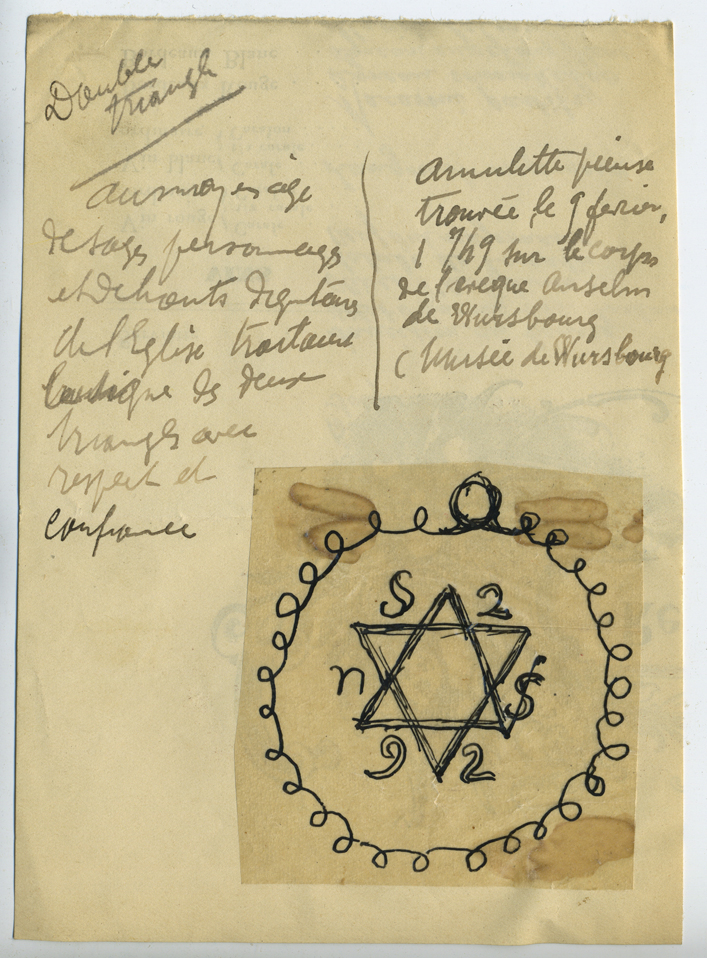 Double
triangle
au moyen âge
de sages personnages
et de hauts dignitaires
de l'Eglise traitaient
des deux
triangles avec
respect et
confiance
amulette pieuse
trouvée le 9 fevrier,
1749 sur le corps
de l'eveque Anselm
de Wursbourg
( Musée de Wursbourg
S 2
n S
9 2